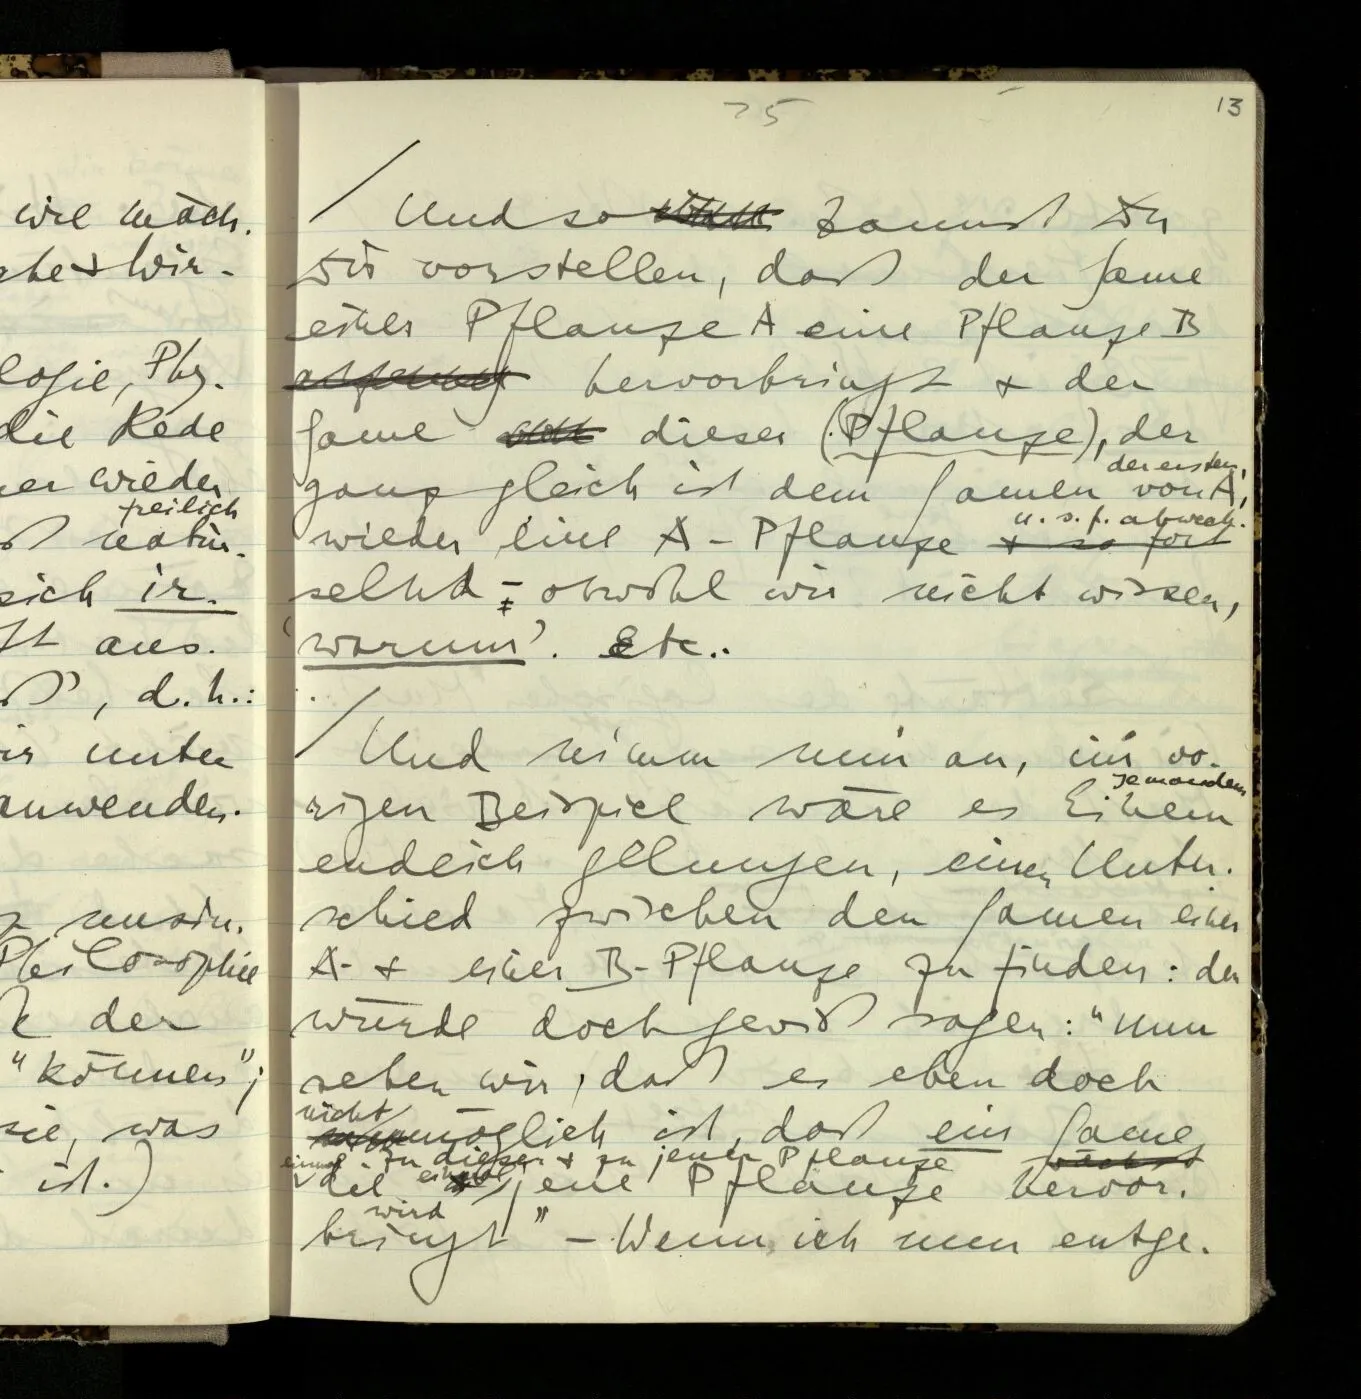 wie mäch.
+ Wir-
logie, Phy.
die Rede
wieder
freilich
natür-
sich ir.
aus.
d.h.:
wir unter
anwenden.
unsin.
Philosophie
der
"können";
sie, was
ist.)
75
13
/ Und so kannst Du
Dir vorstellen, daß der Same
einer Pflanze A eine Pflanze B
hervorbringt & der
Same dieser (Pflanze), der
der ersten,
ganz gleich ist dem Samen von A,
u.s.f. abwech.
wieder eine A-Pflanze & so fort
selnd - obwohl wir nicht wissen,
'warum'. Etc..
/ Und nimm nun an, im vo-
jemandem
rigen Beispiel wäre es Einem
endlich gelungen, einen Unter-
schied zwischen den Samen einer
A- & einer B-Pflanze zu finden: der
würde doch gewiß sagen: "Nun
sehen wir, daß es eben doch
nicht
unmöglich ist, daß ein Same
einmal zu dieser & zu jener Pflanze wächst
einmal jene Pflanze hervor-
wird
bringt" – Wenn ich nun entge-